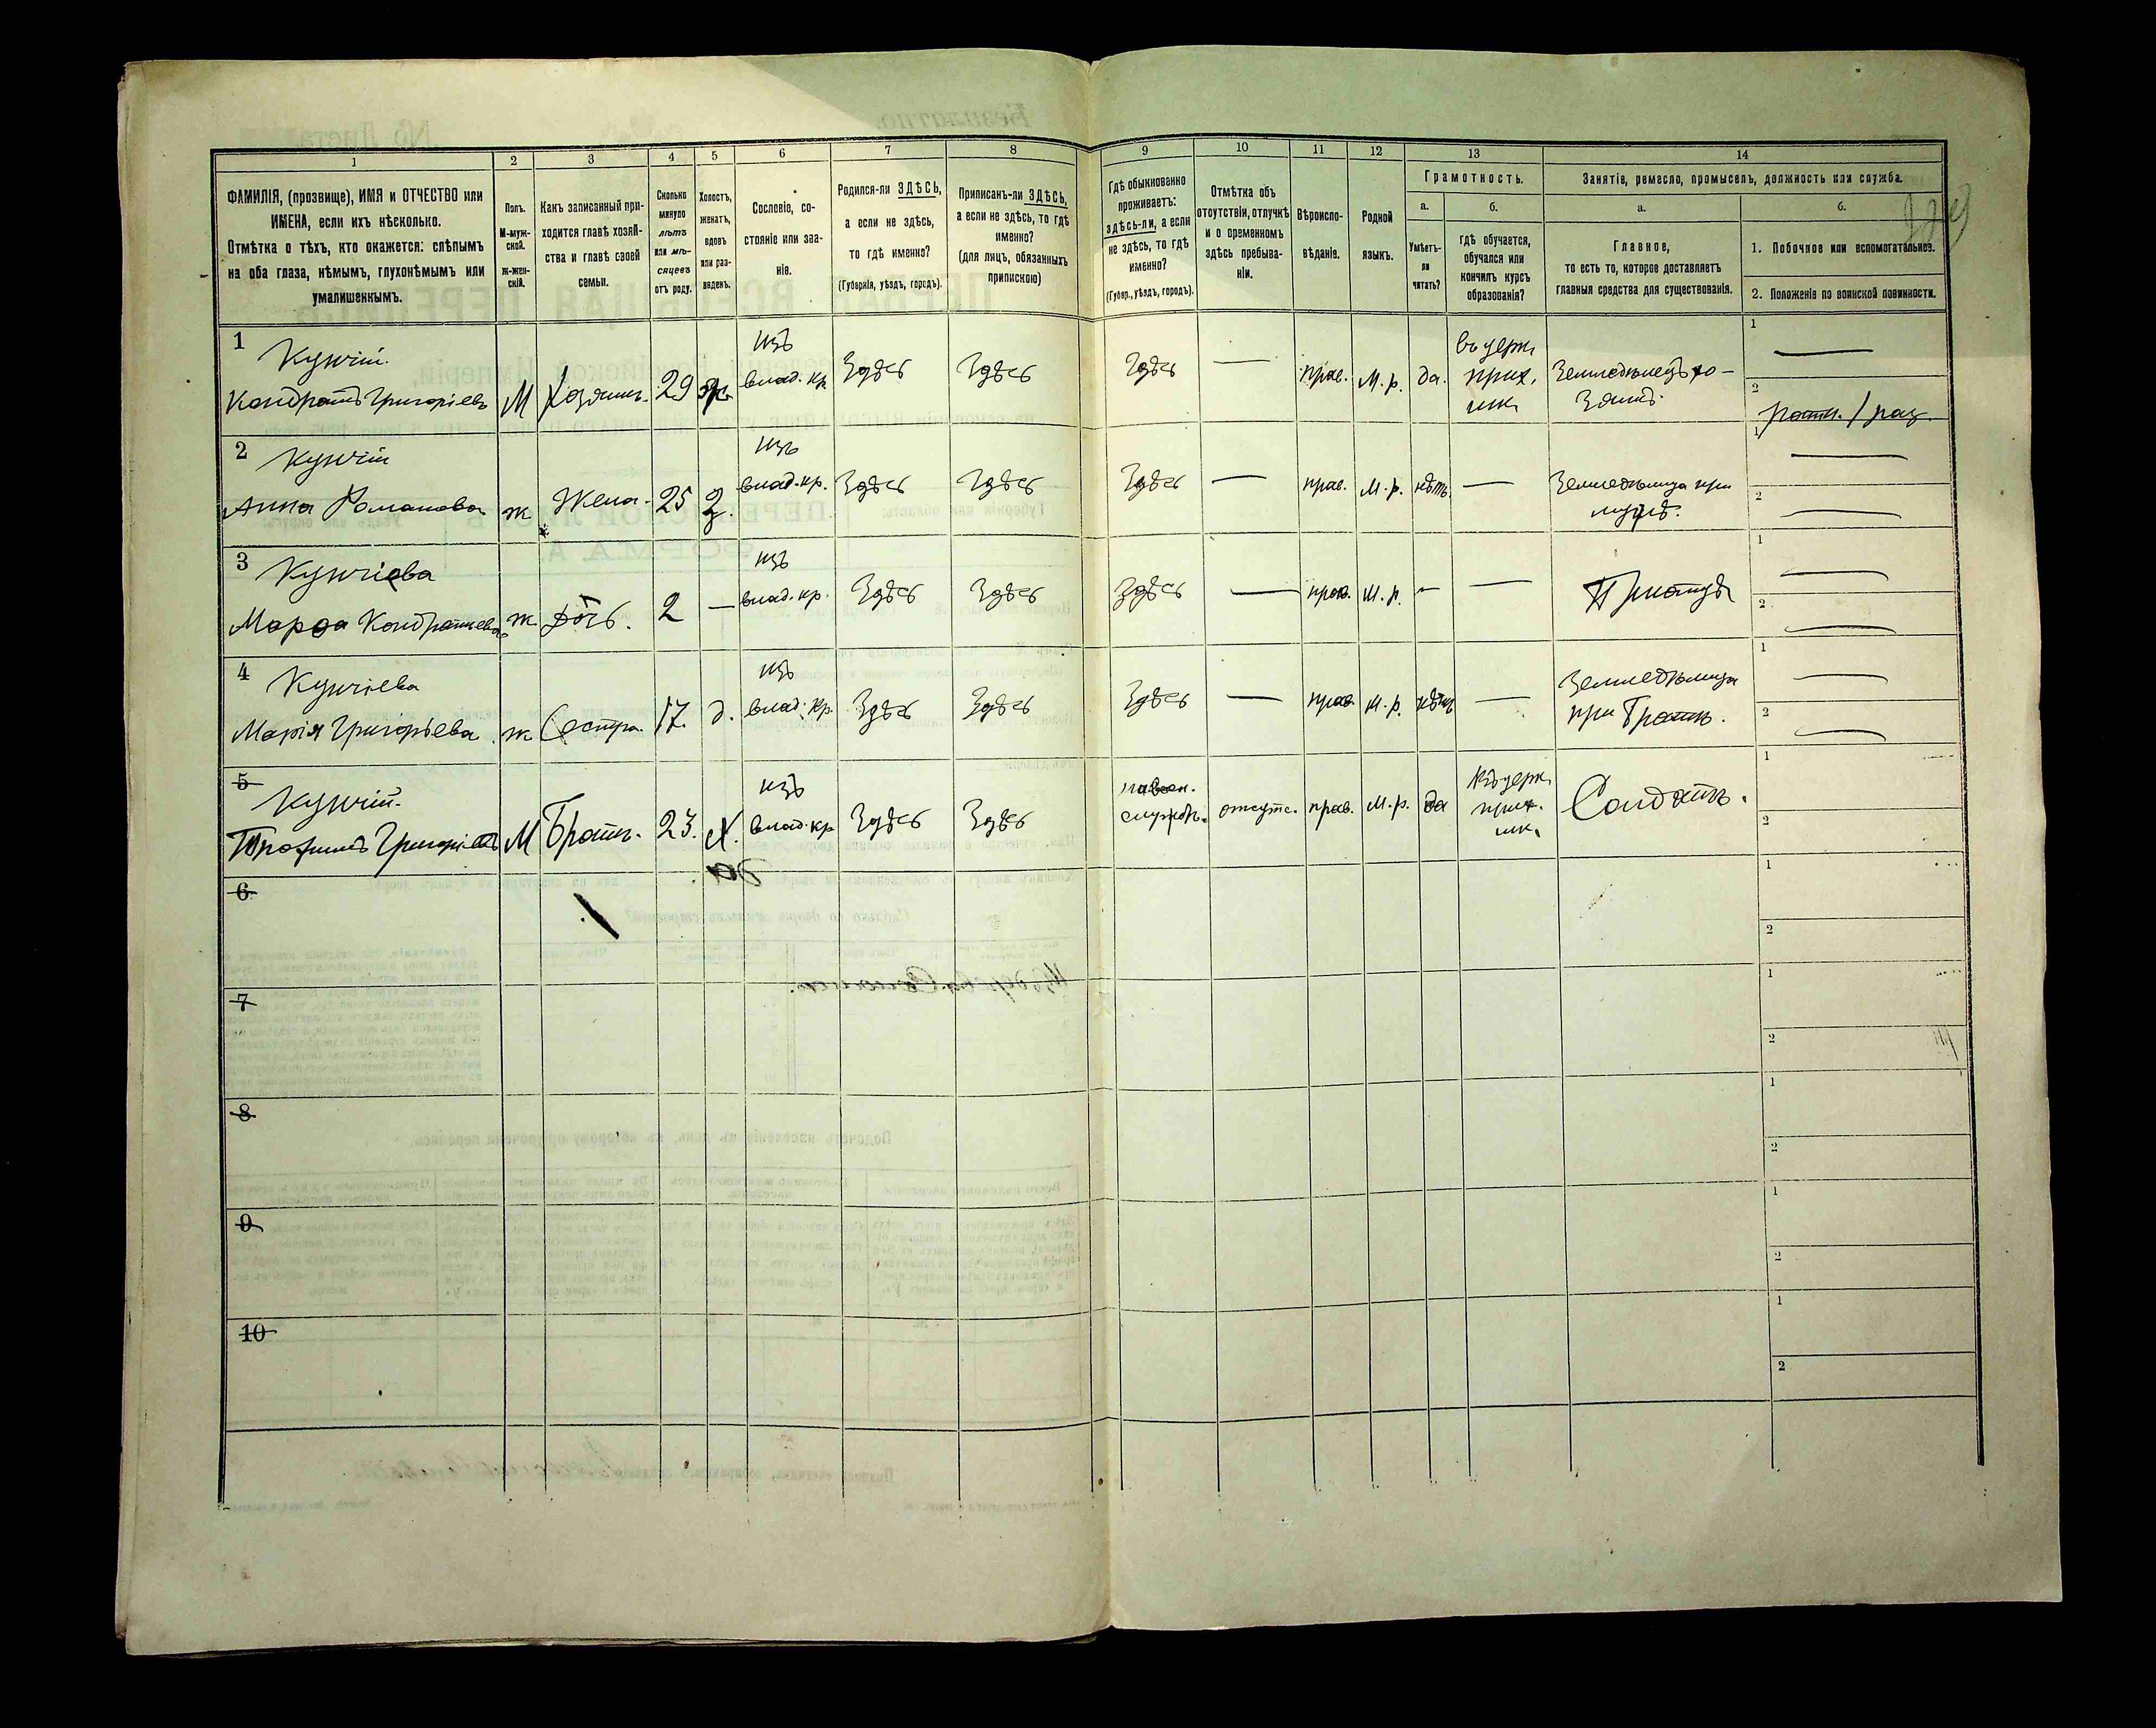 1 2 3 4 5 6 7 8 9 10 11 12 13 14
ФАМИЛІЯ, (прозвище), ИМЯ и ОТЧЕСТВО или
ИМЕНА, если ихъ нѣсколько.
Отмѣтка о тѣхъ, кто окажется: слѣпымъ
на оба глаза, нѣмымъ, глухонѣмымъ или
умалишеннымъ.
Полъ.
М-муж-
ской.
ж-жен-
скій.
Какъ записанный при-
ходится главѣ хозяй-
ства и главѣ своей
семьи.
Сколько
минуло
лѣтъ
или мѣ-
сяцевъ
отъ роду.
Холостъ,
женатъ,
вдовъ
или раз-
веденъ.
Сословіе, со-
стояніе или зва-
ніе.
Родился-ли ЗДѢСЬ,
а если не здѣсь,
то гдѣ именно?
(Губернія, уѣздъ, городъ).
Приписанъ-ли ЗДѢСЬ,
а если не здѣсь, то гдѣ
именно?
(для лицъ, обязанныхъ
припискою)
Гдѣ обыкновенно
проживаетъ:
здѣсь-ли, а если
не здѣсь, то гдѣ
именно?
(Губер., уѣздъ, городъ).
Отмѣтка объ
отсутствіи, отлучкѣ
и о временномъ
здѣсь пребыва-
ніи.
Вѣроиспо-
вѣданіе.
Родной
языкъ.
Грамотность.
а.
Умѣетъ-
ли
читать?
б.
гдѣ обучается,
обучался или
кончилъ курсъ
образованія?
Занятіе, ремесло, промыселъ, должность или служба.
а.
Главное,
то есть то, которое доставляетъ
главныя средства для существованія.
б.
1. Побочное или вспомогательное.
2. Положеніе по воинской повинности.
1
Кондратъ Григоріевъ М Хозяинъ 29 ж
изъ
влад. кр. Здѣсь Здѣсь Здѣсь — прав. М. р. да.
въ церк.
прих.
шк.
Земледѣлецъ хо-
зяинъ.
1 —
2
2
Анна Романова ж Жена 25 з.
изъ
влад. кр. Здѣсь Здѣсь Здѣсь — прав. М. р. нѣтъ —
Земледѣлица при
мужѣ.
1 —
2 —
3
Марфа Кондратьева ж Дочь. 2 —
изъ
влад. кр. Здѣсь Здѣсь Здѣсь — прав. М. р. — —
При отцѣ
1 —
2 —
4
Марія Григорьева ж Сестра 17. д.
изъ
влад. кр. Здѣсь Здѣсь Здѣсь — прав. М. р. нѣтъ —
Земледѣлица
при братѣ.
1 —
2 —
5
Трофимъ Григоріевъ М Братъ. 23. х.
изъ
влад. кр. Здѣсь Здѣсь
на воен.
службѣ. отсутс. прав. М. р. да
въ церк.
прих.
шк.
Солдатъ.
1
2
6
1
2
7
1
2
8
1
2
9
1
2
10
1
2